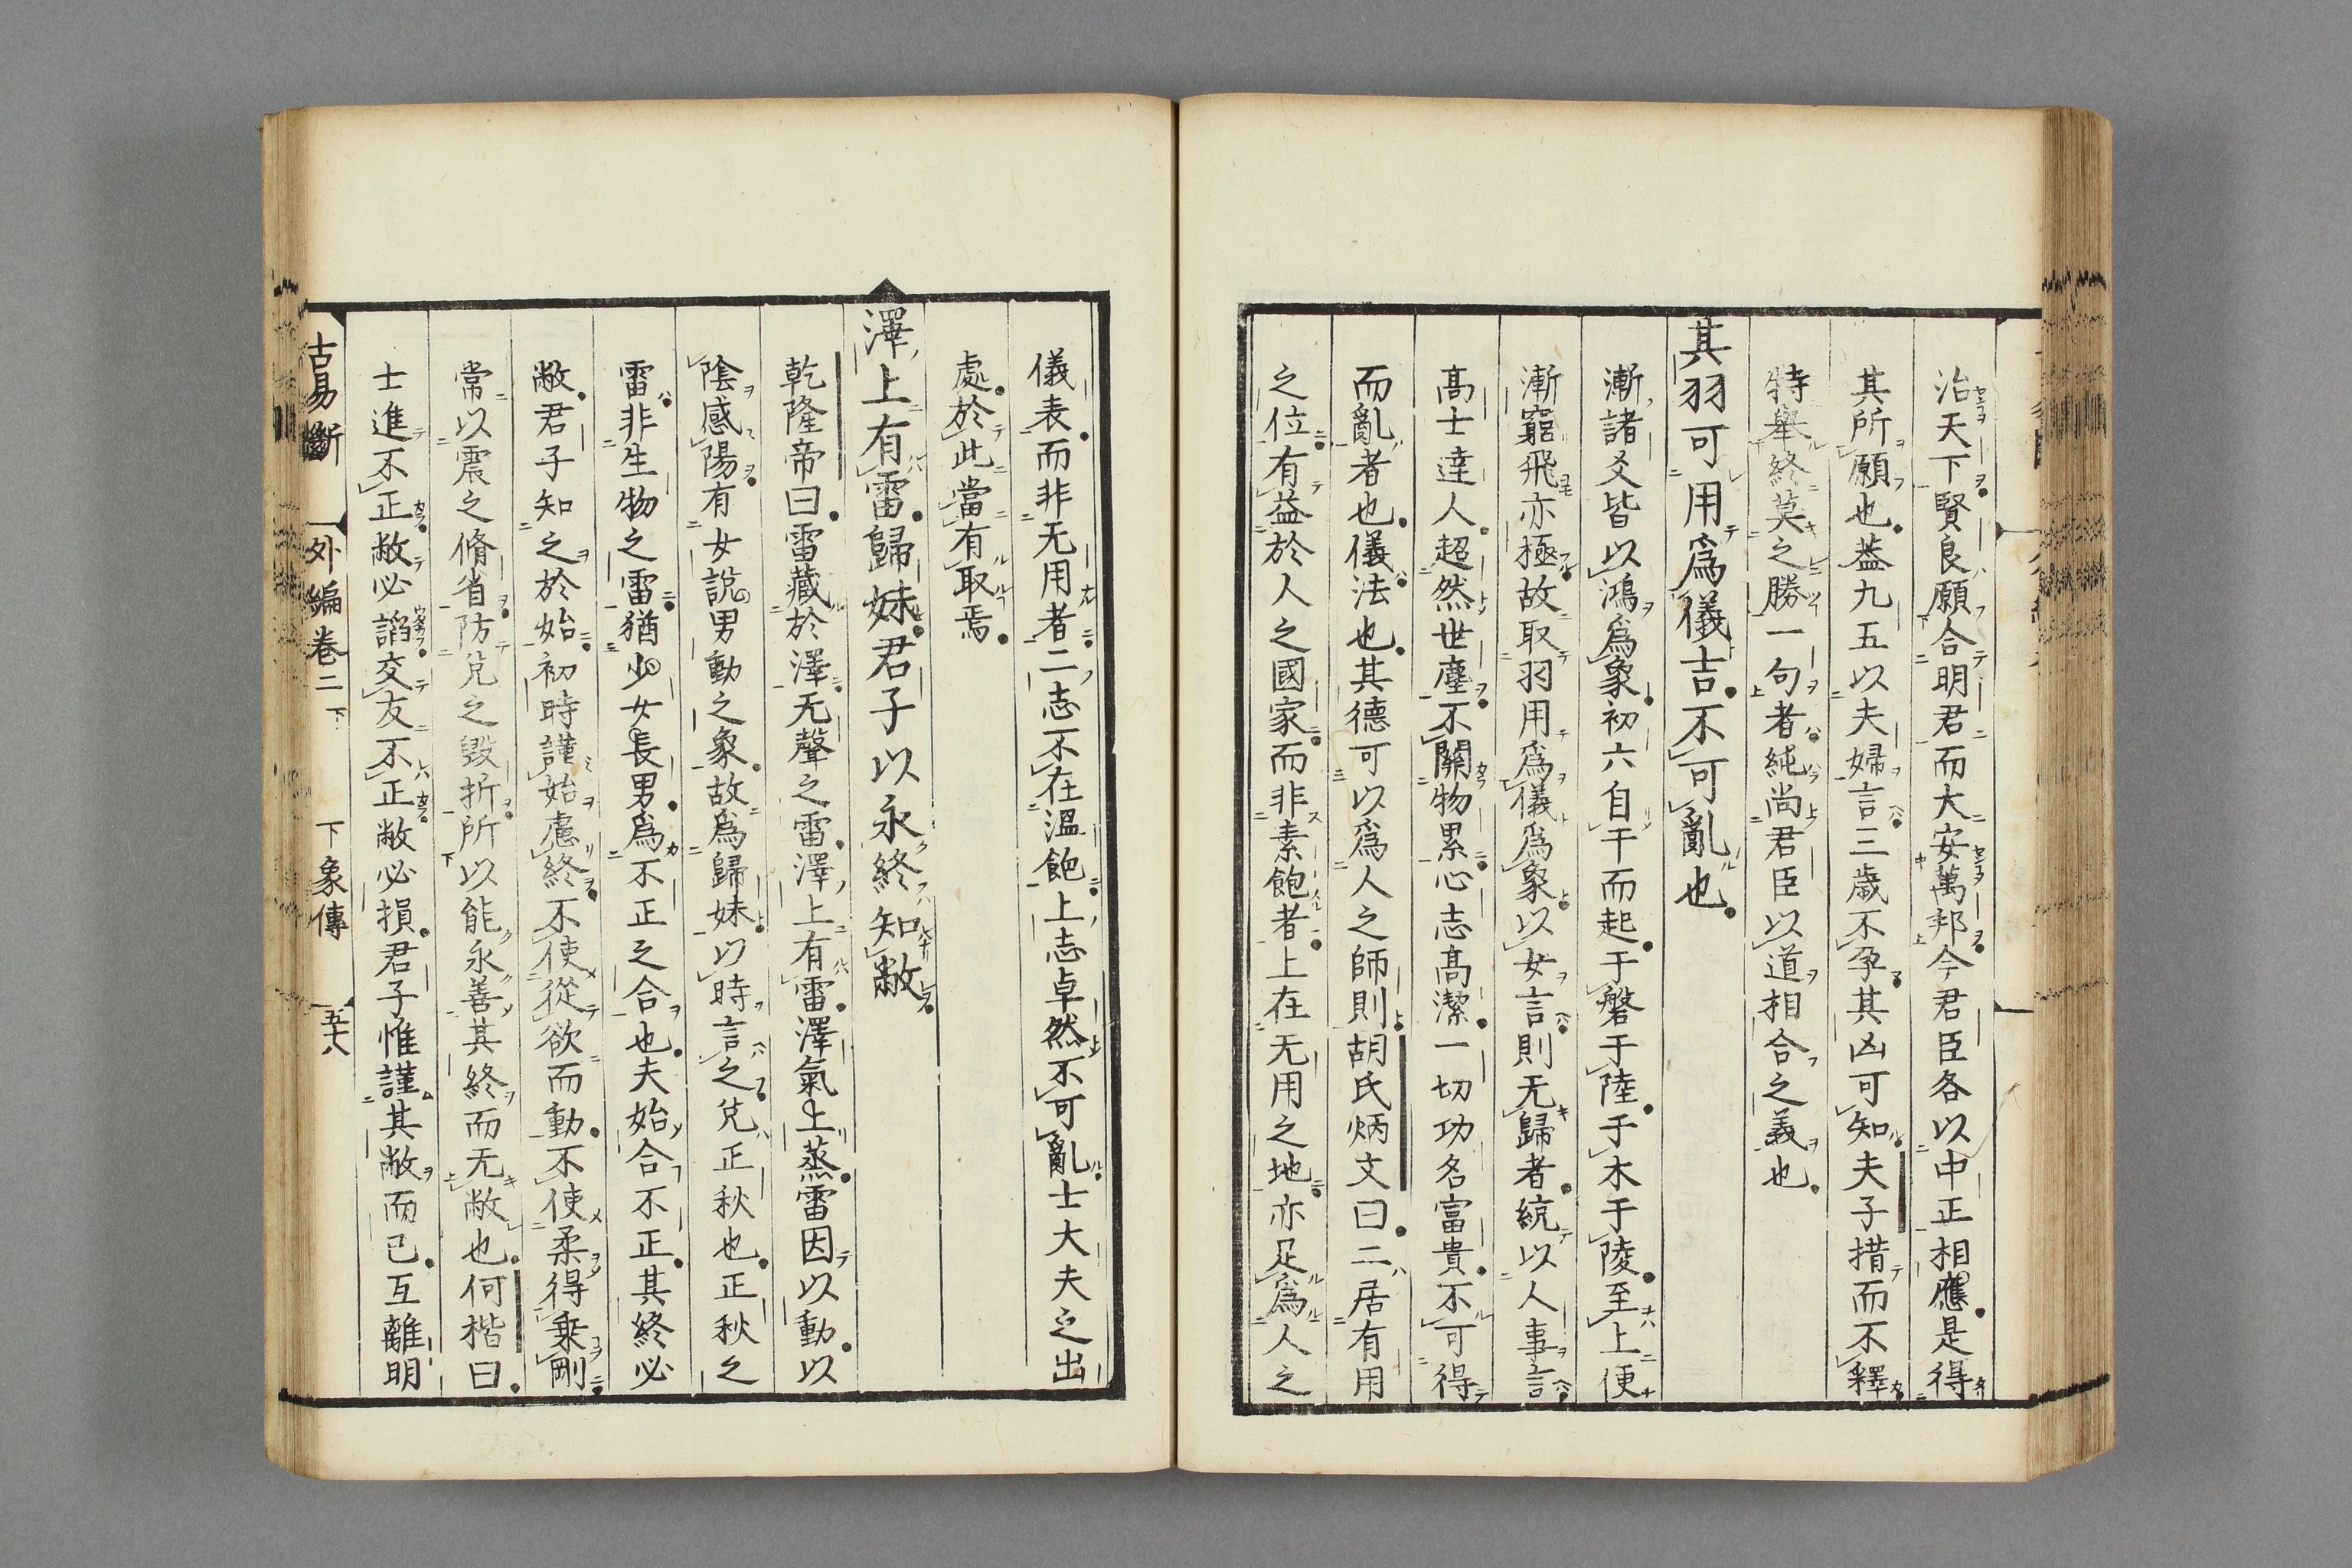 治天下賢良願合明君而大安萬邦今君臣各以中正相應是得
其所願也葢九五以夫婦言三歳不孕其凶可知夫子措而不釋
特舉終莫之勝一句者純尚君臣以道相合之義也
其羽可用爲儀吉不可亂也
漸諸爻皆以鴻爲象初六自干而起于磐于陸于木于陵至上便
漸窮飛亦極故取羽用爲儀爲象以女言則无歸者統以人事言
高士達人超然世塵不關物累心志高潔一切功名富貴不可得
而亂者也儀法也其德可以爲人之師則胡氏炳文曰二居有用
之位有益於人之國家而非素飽者上在无用之地亦足爲人之
儀表而非无用者二志不在溫飽上志卓然不可亂士大夫之出
處於此當有取焉
澤上有雷歸妹君子以永終知敝
乾隆帝曰雷藏於澤无聲之雷澤上有雷澤氣上蒸雷因以動以
陰感陽有女說男動之象故爲歸妹以時言之兌正秋也正秋之
雷非生物之雷猶少女長男爲不正之合也夫始合不正其終必
敝君子知之於始初時謹始慮終不使從欲而動不使柔得乗剛
常以震之脩省防兌之毀折所以能永善其終而无敝也何楷曰
士進不正敝必謟交友不正敝必損君子惟謹其敝而已互離明
古易斷 外編卷二下 下象傳 五十八